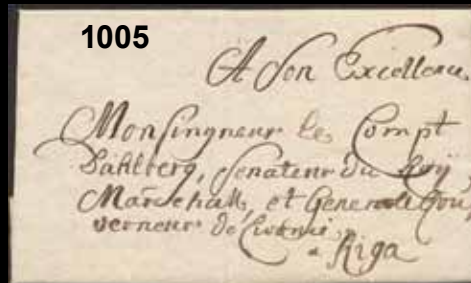 1005
A Son Excellence
Monsingneur le Compt
Dahlberg, Senateur du Roÿ,
Marechall, et Generale Gou
verneur de Livonie,
a Riga